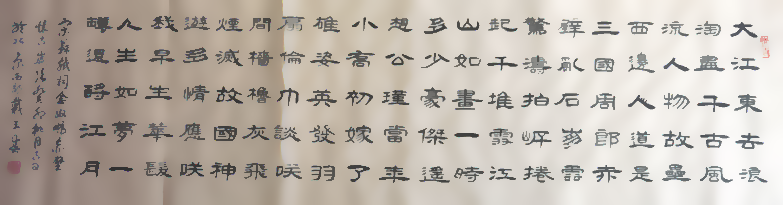 大江東去浪
淘盡千古風
流人物故壘
西邊人道是
三國周郎赤
壁亂石崩雲
驚濤拍岸捲
起千堆雪江
山如畫一時
多少豪傑遙
想公瑾當年
小喬初嫁了
雄姿英發羽
扇綸巾談咲
間檣櫓灰飛
煙滅故國神
遊多情應咲
我早生華髮
人生如夢一
罇還酹江月
宋蘇軾詞念奴嬌赤壁
懷古歲次癸卯桃月吉日